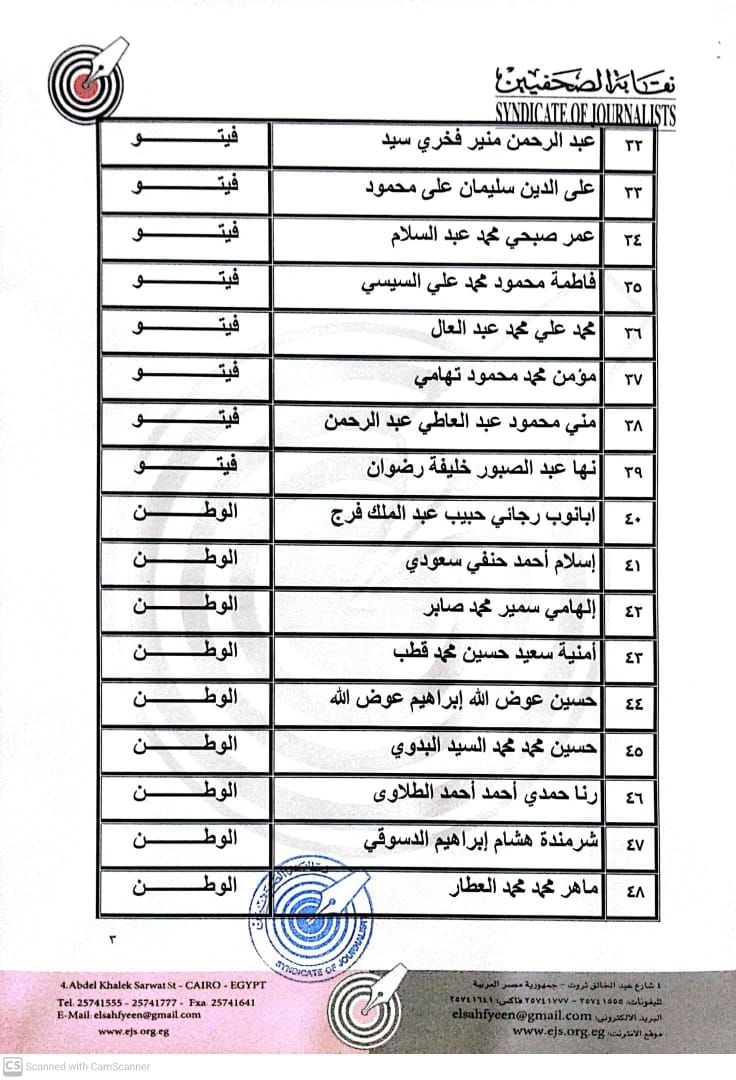 نقابة الصحفيين
SYNDICATE OF JOURNALISTS
٣٢ عبد الرحمن منير فخري سيد فيتـــــــو
٣٣ على الدين سليمان على محمود فيتـــــــو
٣٤ عمر صبحي محمد عبد السلام فيتـــــــو
٣٥ فاطمة محمود محمد علي السيسي فيتـــــــو
٣٦ محمد علي محمد عبد العال فيتـــــــو
٣٧ مؤمن محمد محمود تهامي فيتـــــــو
٣٨ مني محمود عبد العاطي عبد الرحمن فيتـــــــو
٣٩ نها عبد الصبور خليفة رضوان فيتـــــــو
٤٠ ابانوب رجائي حبيب عبد الملك فرج الوطـــــــن
٤١ إسلام أحمد حنفي سعودي الوطـــــــن
٤٢ إلهامي سمير محمد صابر الوطـــــــن
٤٣ أمنية سعيد حسين محمد قطب الوطـــــــن
٤٤ حسين عوض الله إبراهيم عوض الله الوطـــــــن
٤٥ حسين محمد محمد السيد البدوي الوطـــــــن
٤٦ رنا حمدي أحمد أحمد الطلاوى الوطـــــــن
٤٧ شرمندة هشام إبراهيم الدسوقي الوطـــــــن
٤٨ ماهر محمد محمد العطار الوطـــــــن
نقابة الصحفيين
SYNDICATE OF JOURNALIST
٣
٤ شارع عبد الخالق ثروت - جمهورية مصر العربية
تليفونات: ٢٥٧٤١٥٥٥ - ٢٥٧٤١٧٧٧ فاكس: ٢٥٧٤١٦٤١
البريد الالكترونى: elsahfyeen@gmail.com
موقع الانترنت: www.ejs.org.eg
4.Abdel Khalek Sarwat St - CAIRO - EGYPT
Tel. 25741555 - 25741777 - Fxa 25741641
E-Mail: elsahfyeen@gmail.com
www.ejs.org.eg
CS Scanned with CamScanner